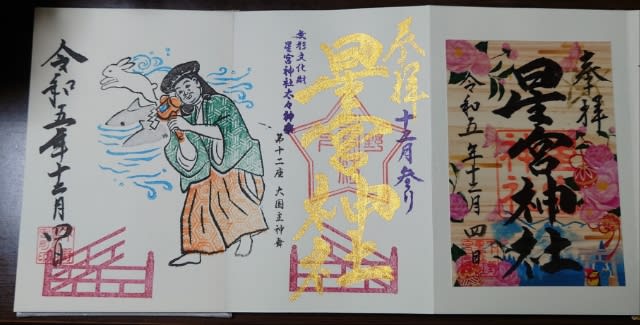 奉拝
十二月参り
星宮神社
無形文化財
星宮神社太々神楽
第十二座 大国主神舞
令和五年十二月四日
奉拝
星宮神社
令和五年十二月四日